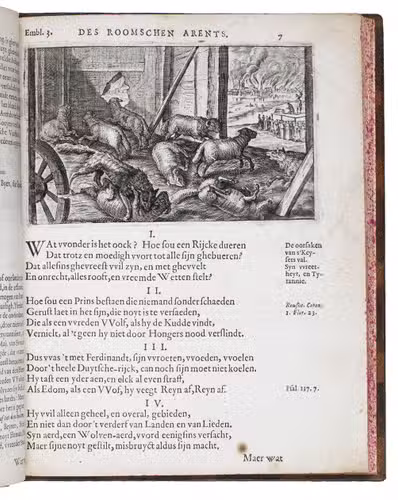 Embl. 3. DES ROOMSCHEN ARENTS. 7
I.
WAt vvonder is het oock? Hoe sou een Rijcke dueren
Dat trotz en moedigh vvort tot alle sijn ghebueren?
Dat allesins ghevreest vvil zyn, en met ghevvelt
En onrecht, alles rooft, en vreemde Wetten stelt?
De oorsaken
van t'Key-
sers val.
Syn vvreet-
heyt, en Ty-
rannie.
II.
Hoe sou een Prins bestaen die niemand sonder schaeden
Gerust laet in het sijn, die noyt is te versaeden,
Die als een vvreden VVolf, als hy de Kudde vindt,
Vernielt, al 'tgeen hy niet door Hongers nood verslindt.
1. 23.
III.
Dus vvas 't met Ferdinandt, sijn vvroeten, vvoeden, vvoelen
Door't heele Duytsche-rijck, can noch sijn moet niet koelen.
Hy tast een yder aen, en elck al even straff,
Als Edom, als een VVof, hy veegt Reyn af, Reyn af.
Psal. 137. 7.
IV.
Hy vvil alleen geheel, en overal, gebieden,
En niet dan door't verderf van Landen en van Lieden.
Syn aerd, een Wolven-aerd, vvord eenigsins versacht,
Maer sijne noyt gestilt, misbruyckt aldus sijn macht.
Maer wat